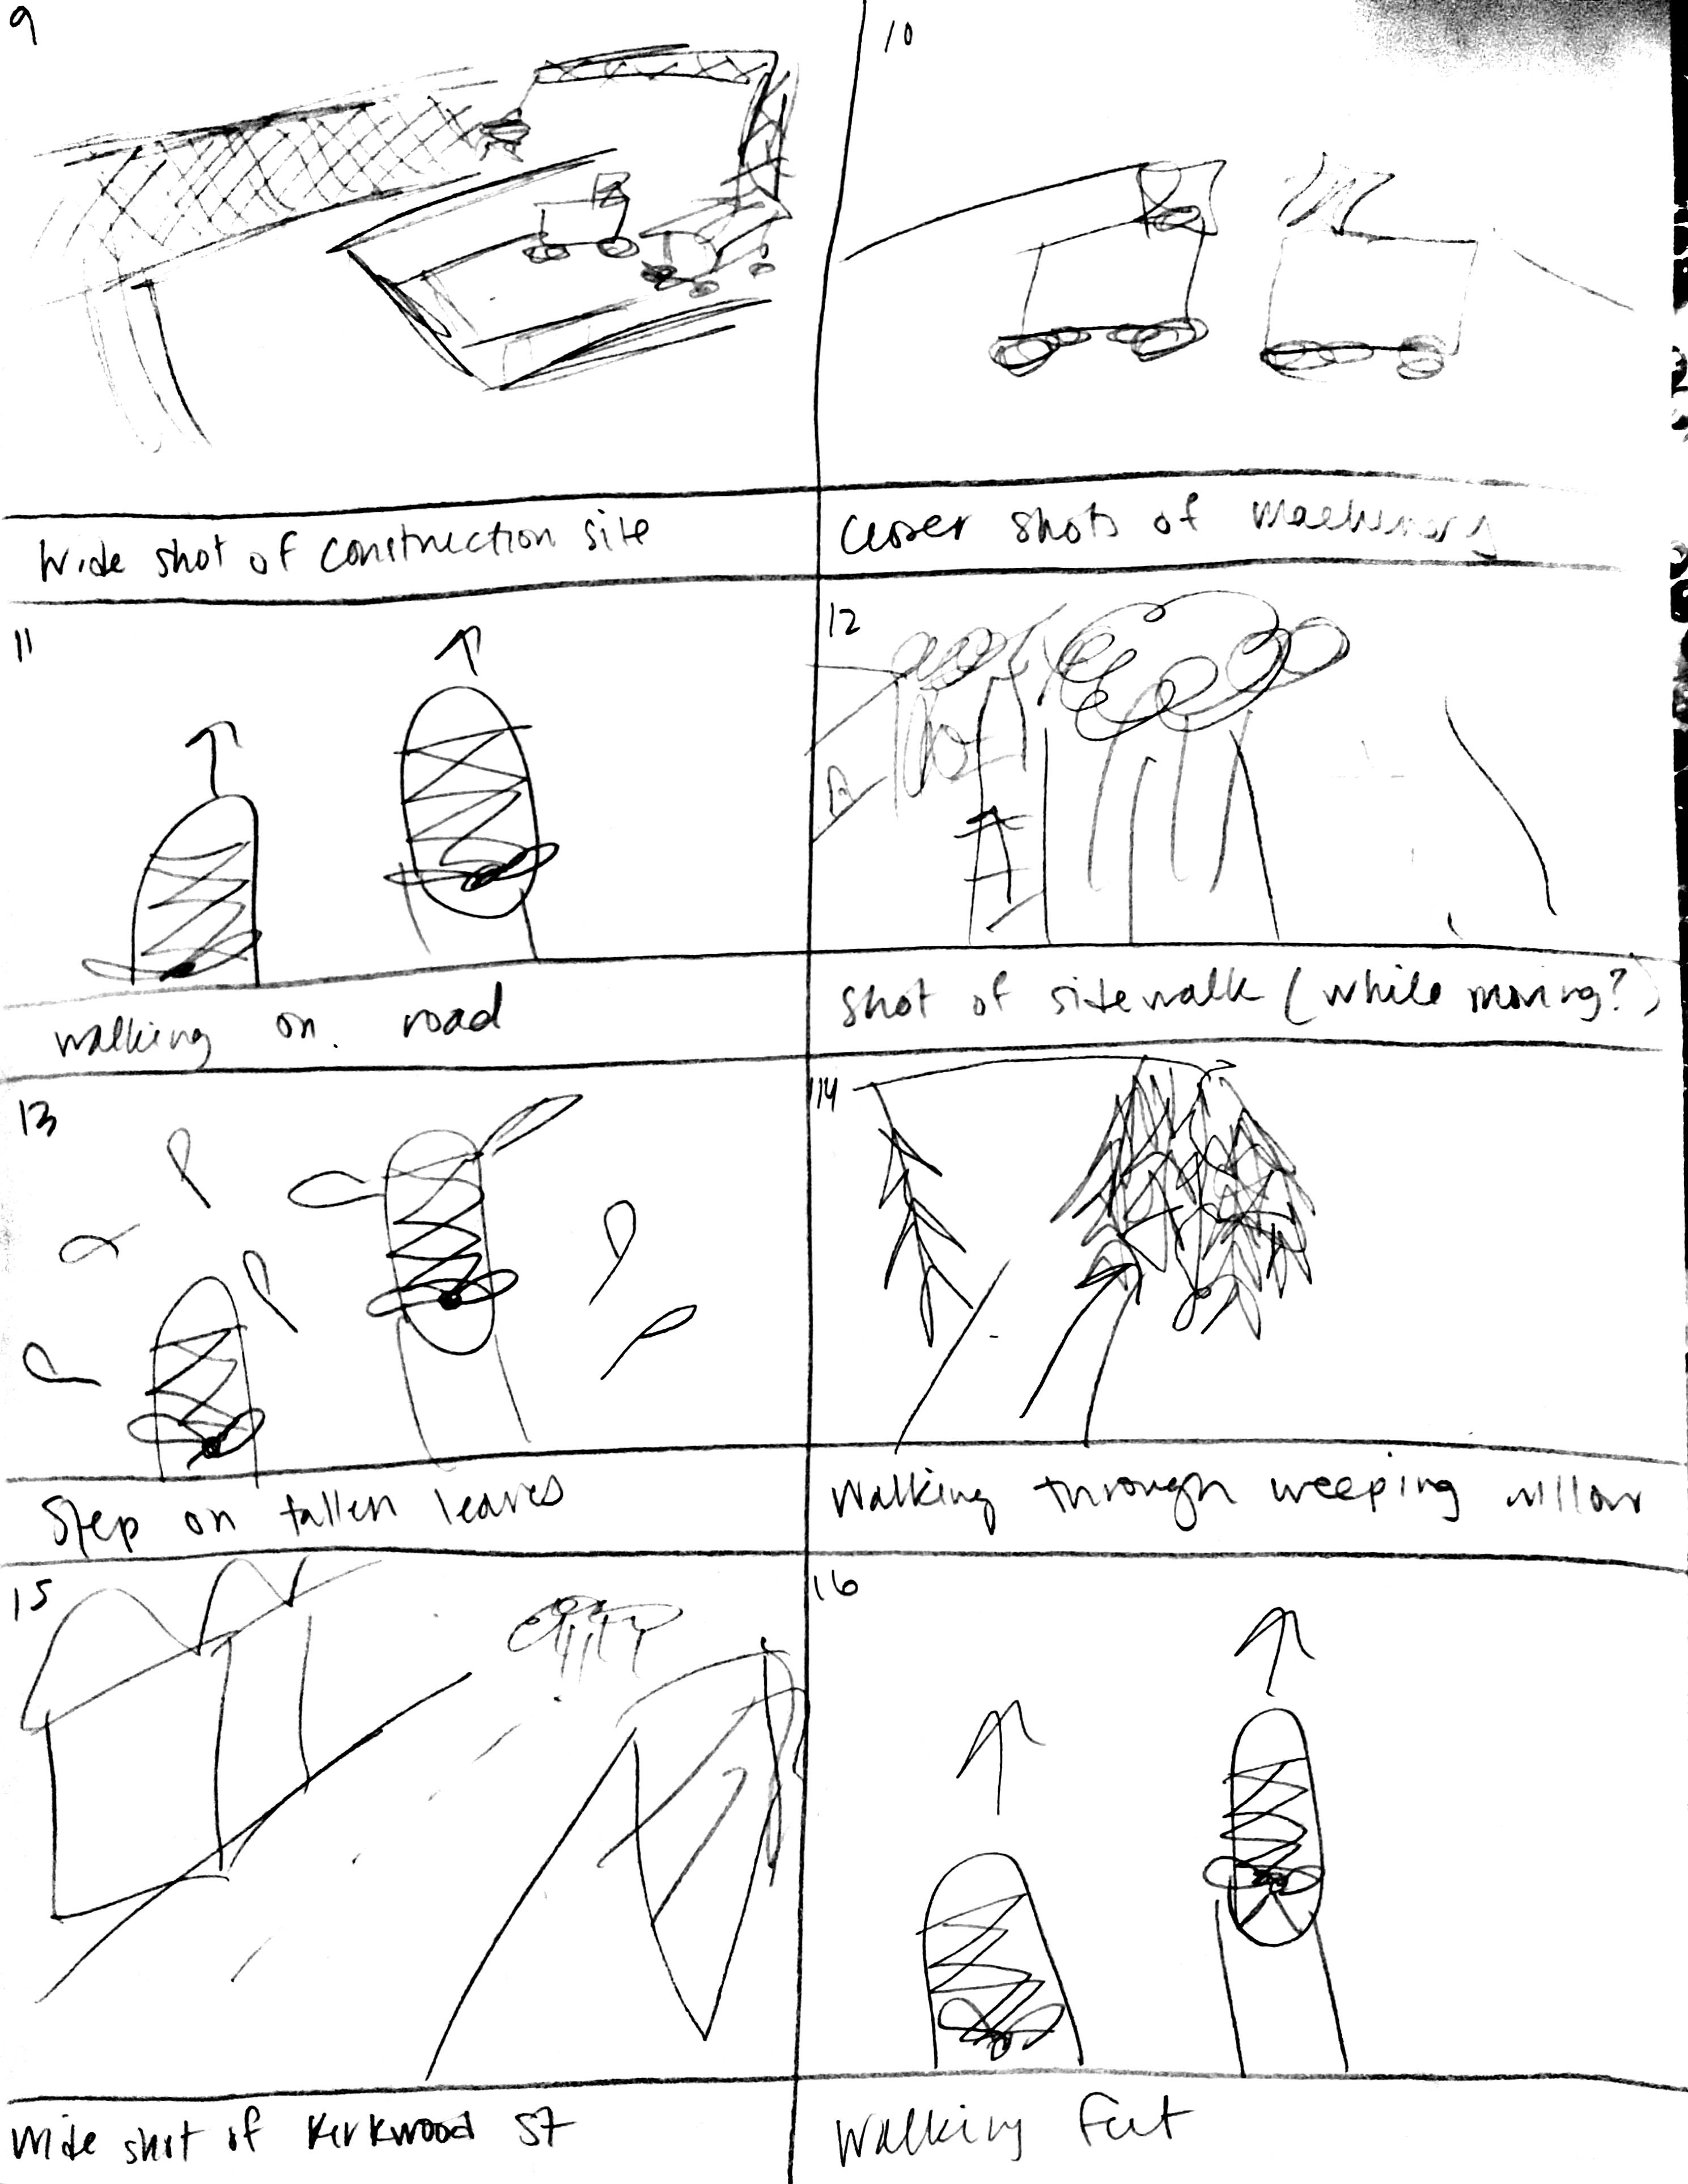 9
10
Wide shot of construction site
Closer shots of Machinery
11
12
walking on road
Shot of sidewalk (while moving?)
13
14
Step on fallen leaves
Walking through weeping willow
15
16
Wide shot of Kirkwood St
Walking feet